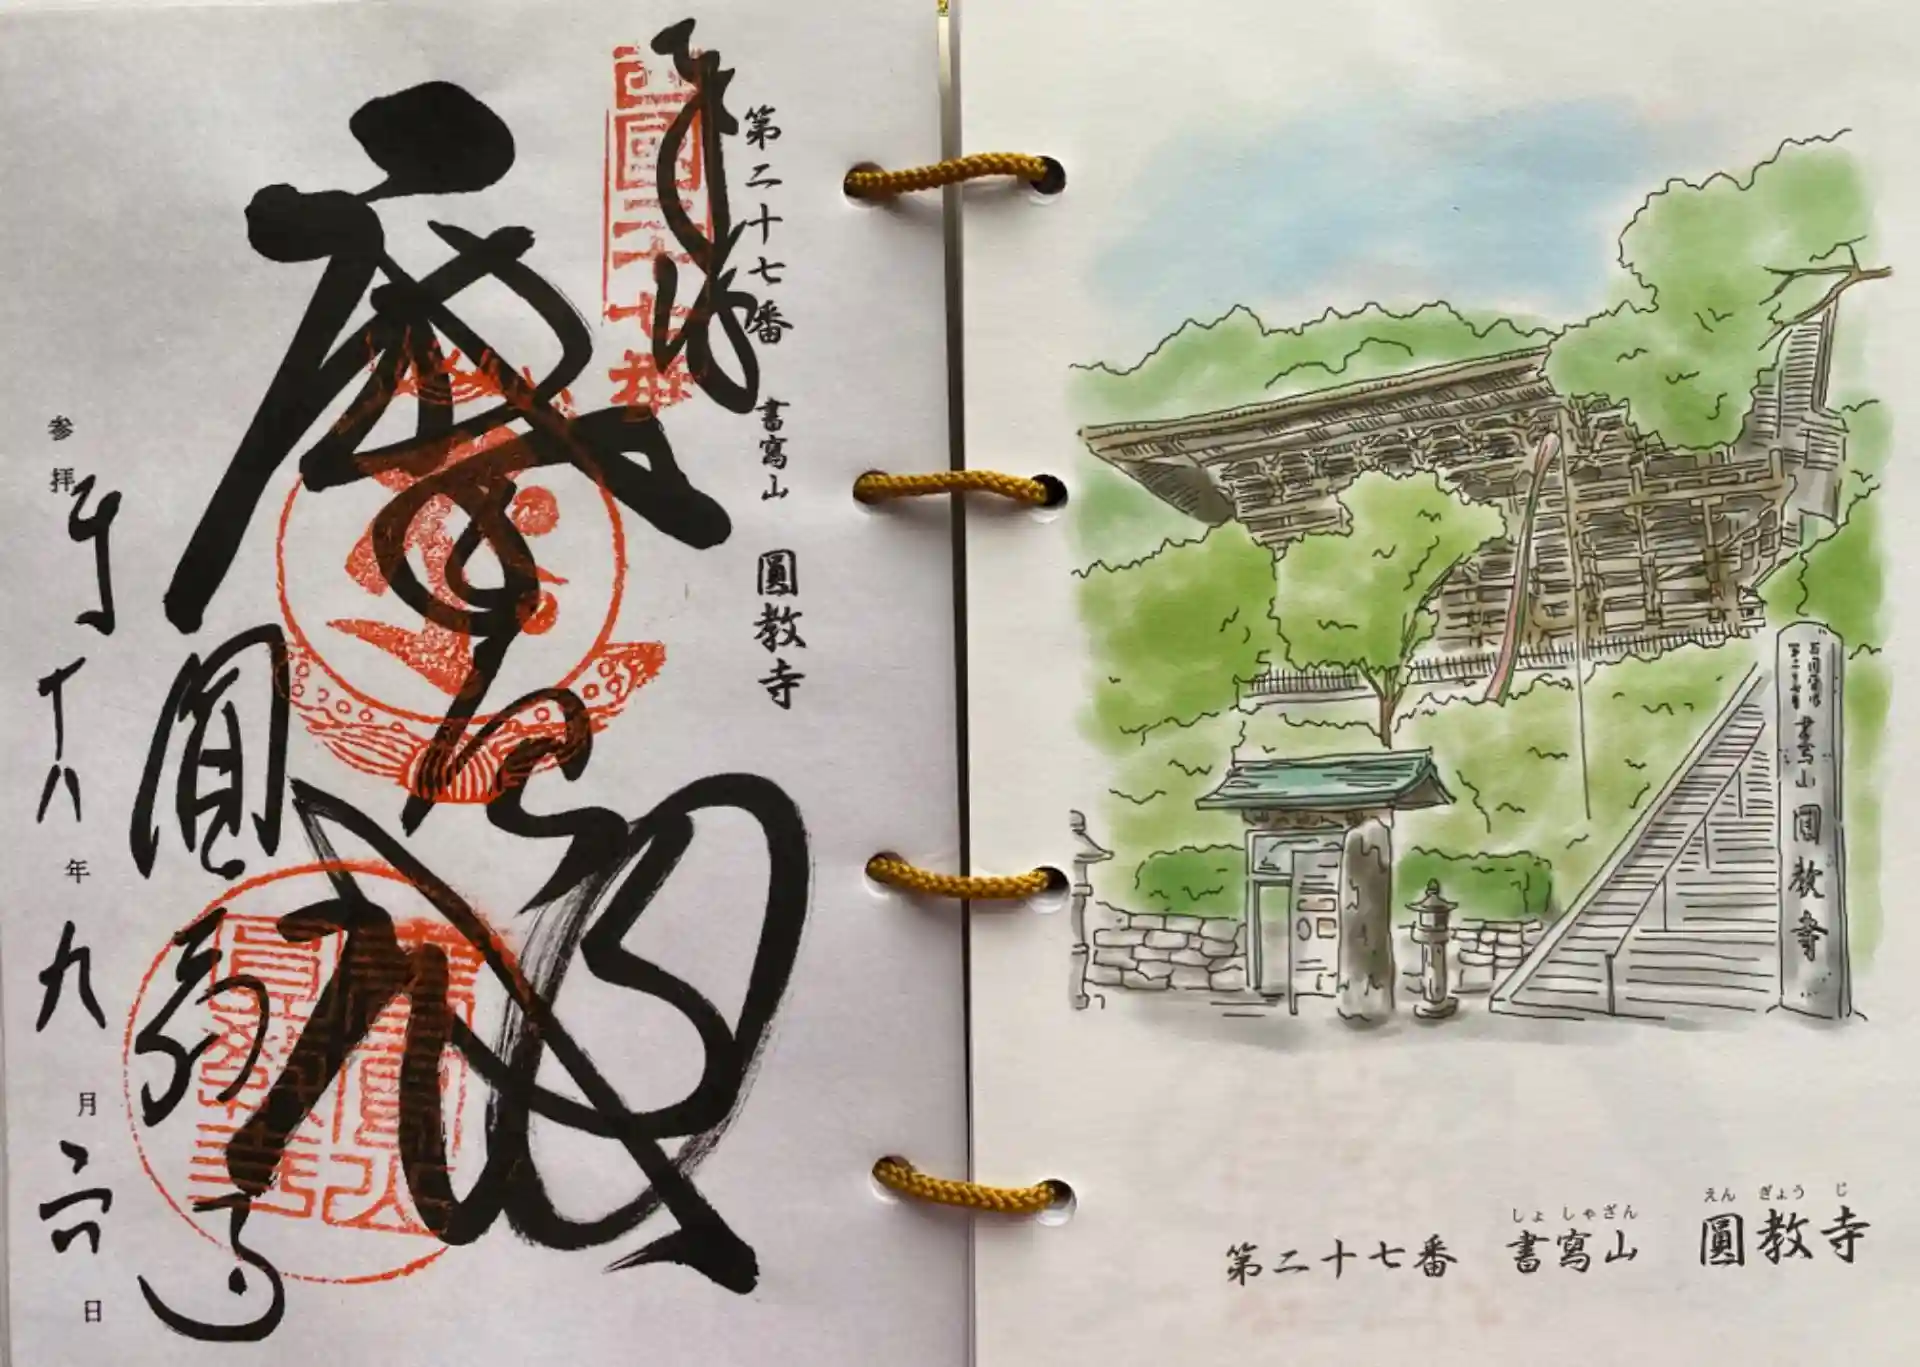 奉拝
第二十七番 書寫山 圓教寺
西國二十七番
摩尼殿
圓教寺
参拝 十八年 九月 六日
書写山 圓教寺
しょしゃざん えんぎょうじ
第二十七番 書寫山 圓教寺